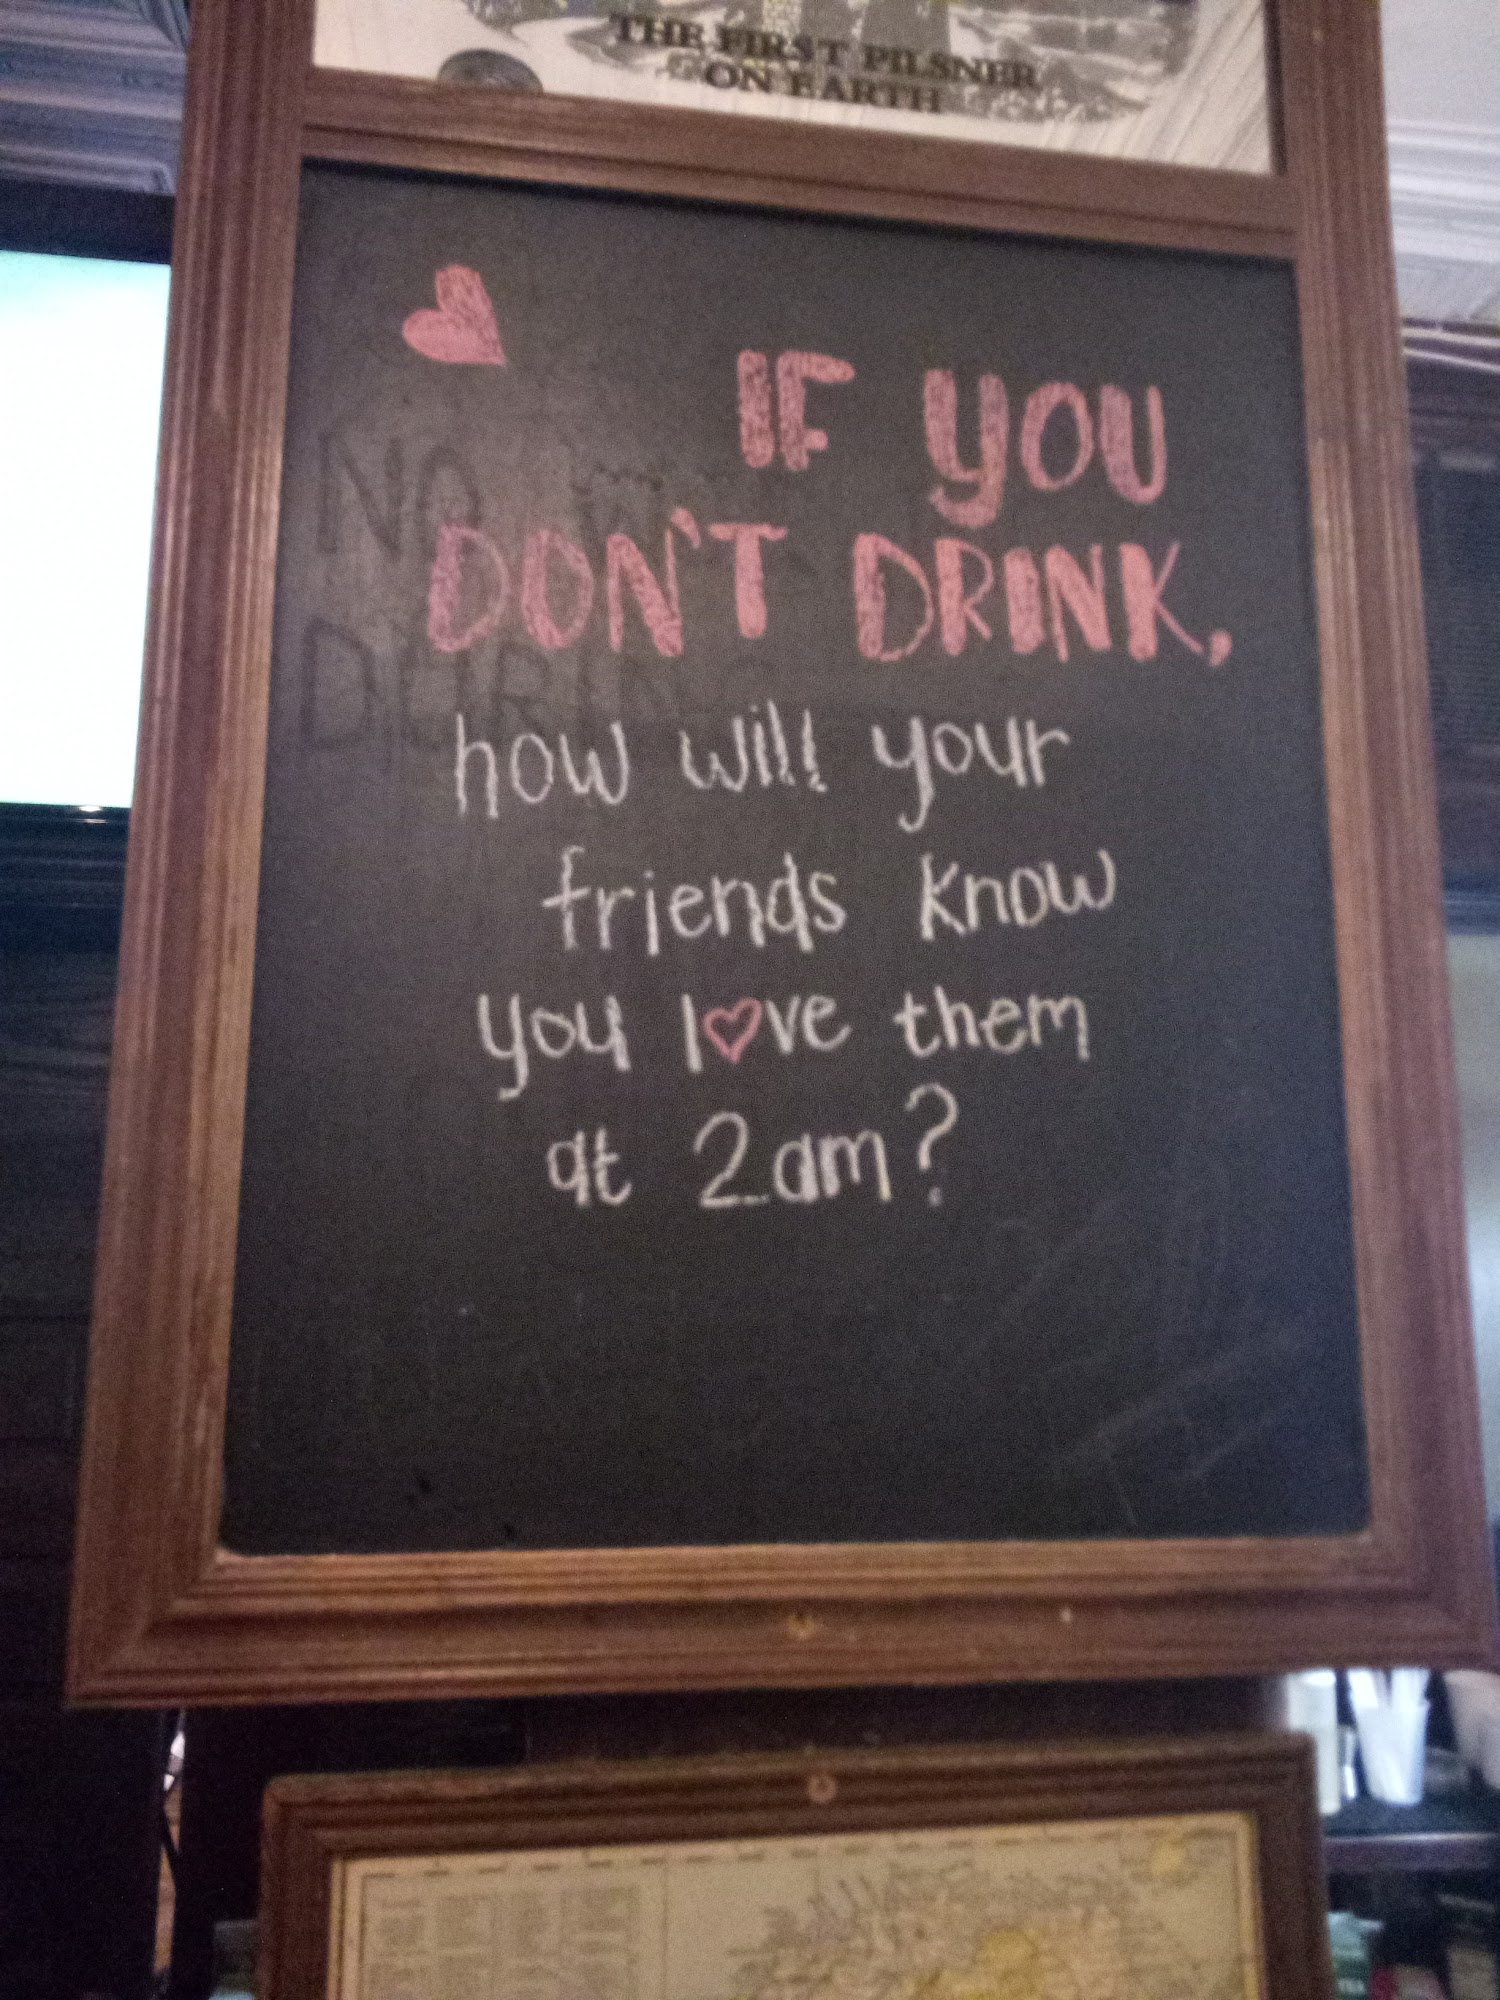 THE FIRST PILSNER
ON EARTH
IF YOU
DON'T DRINK,
how will your
friends know
you l♡ve them
at 2am?
NO
DURING